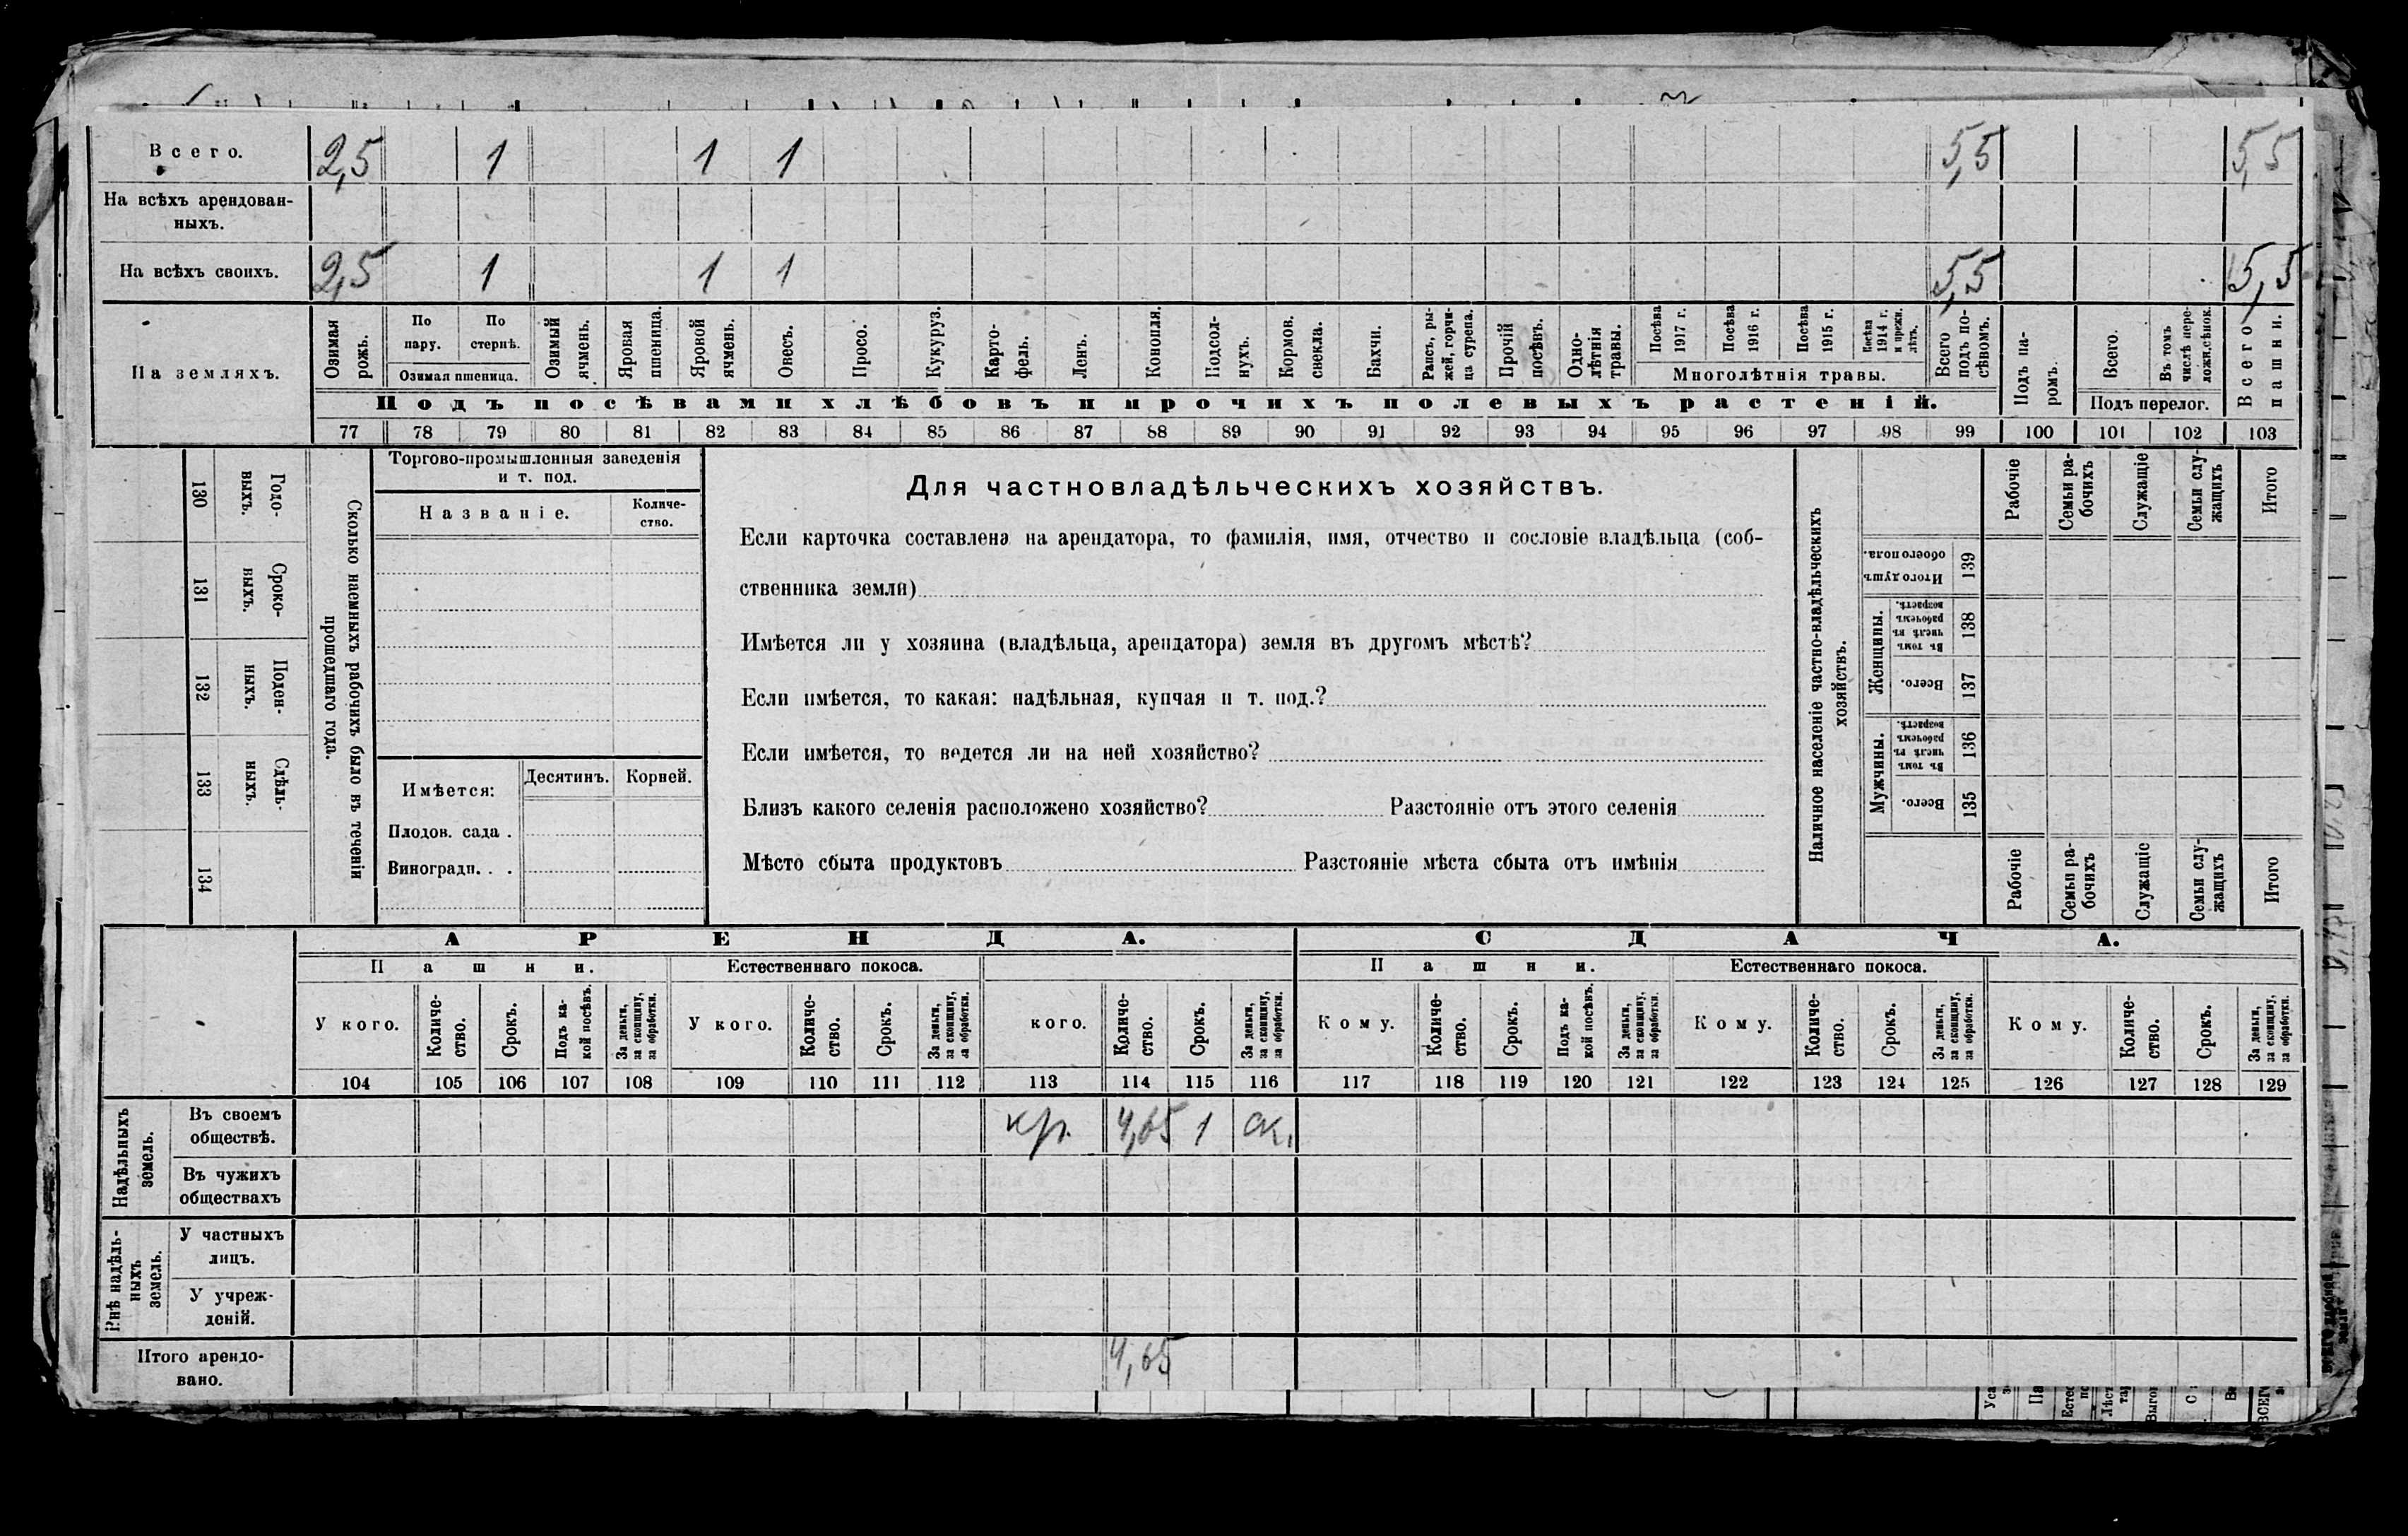 Всего. 2,5 1 1 1 5,5 5,5
На всѣхъ арендован-
ныхъ.
На всѣхъ своихъ. 2,5 1 1 1 5,5 5,5
На земляхъ.
Озимая
рожь.
По
пару.
По
стернѣ.
Озимая пшеница.
Озимый
ячмень.
Яровая
пшеница.
Яровой
ячмень.
Овесъ.
Просо.
Кукуруз.
Карто-
фель.
Ленъ.
Конопля.
Подсол-
нухъ.
Кормов.
свекла.
Бахчи.
Рапсъ, ры-
жей, горчи-
ца сурепа.
Прочій
посѣвъ.
Одно-
лѣтнія
травы.
Посѣва
1917 г.
Посѣва
1916 г.
Посѣва
1915 г.
Посѣва
1914 г.
и прежн.
лѣтъ.
Многолѣтнія травы.
Всего
подъ по-
сѣвомъ.
Подъ па-
ромъ.
Всего.
Въ томъ
числѣ пере-
ложн.сѣнок.
Подъ перелог.
Всего
пашни.
Подъ посѣвами хлѣбовъ и прочихъ полевыхъ растеній.
77 78 79 80 81 82 83 84 85 86 87 88 89 90 91 92 93 94 95 96 97 98 99 100 101 102 103
Сколько наемныхъ рабочихъ было въ теченіи
прошедшаго года.
Годо-
выхъ.
130
Сроко-
ныхъ.
131
Поден-
ныхъ.
132
Сдѣль-
ныхъ.
133
134
Торгово-промышленныя заведенія
и т. под.
Названіе.
Количе-
ство.
Имѣется:
Десятинъ. Корней.
Плодов. сада .
Виноградн. . .
Для частновладѣльческихъ хозяйствъ.
Если карточка составлена на арендатора, то фамилія, имя, отчество и сословіе владѣльца (соб-
ственника земли)
Имѣется ли у хозяина (владѣльца, арендатора) земля въ другомъ мѣстѣ?
Если имѣется, то какая: надѣльная, купчая и т. под.?
Если имѣется, то ведется ли на ней хозяйство?
Близъ какого селенія расположено хозяйство? Разстояніе отъ этого селенія
Мѣсто сбыта продуктовъ Разстояніе мѣста сбыта отъ имѣнія
Наличное населеніе частно-владѣльческихъ
хозяйствъ.
Рабочіе
Семьи ра-
бочихъ
Служащіе
Семьи слу-
жащихъ
Итого
Итого душъ
обоего пола.
139
Женщины.
Въ томъ
числѣ въ
рабочемъ
возрастѣ.
138
Всего.
137
Мужчины.
Въ томъ
числѣ въ
рабочемъ
возрастѣ.
136
Всего.
135
Рабочіе
Семьи ра-
бочихъ
Служащіе
Семьи слу-
жащихъ
Итого
АРЕНДА. СДАЧА.
Пашни. Естественнаго покоса. Пашни. Естественнаго покоса.
У кого.
Количе-
ство.
Срокъ.
Подъ ка-
кой посѣвъ.
За деньги,
за скопщину,
за обработки.
У кого.
Количе-
ство.
Срокъ.
За деньги,
за скопщину,
за обработки.
кого.
Количе-
ство.
Срокъ.
За деньги,
за скопщину,
за обработки.
Кому.
Количе-
ство.
Срокъ.
Подъ ка-
кой посѣвъ.
За деньги,
за скопщину,
за обработки.
Кому.
Количе-
ство.
Срокъ.
За деньги,
за скопщину,
за обработки.
Кому.
Количе-
ство.
Срокъ.
За деньги,
за скопщину,
за обработки.
104 105 106 107 108 109 110 111 112 113 114 115 116 117 118 119 120 121 122 123 124 125 126 127 128 129
Надѣльныхъ
земель.
Въ своемъ
обществѣ.
кр. 4,65 1 ск.
Въ чужихъ
обществахъ
Внѣ надѣль-
ныхъ
земель.
У частныхъ
лицъ.
У учреж-
деній.
Итого арендо-
вано.
4,65